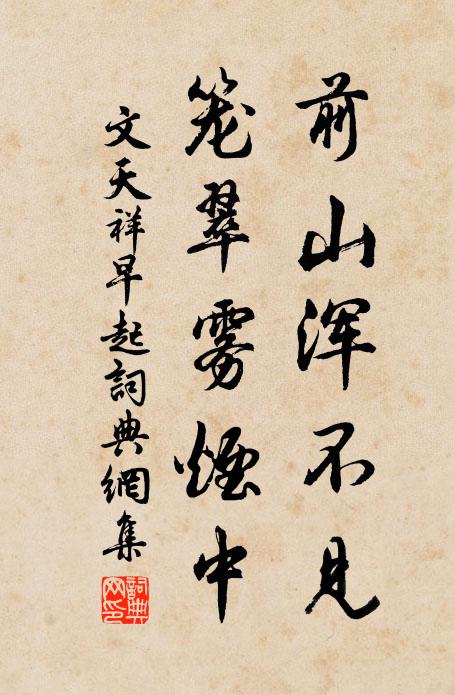 前山浑不见
笼翠雾烟中
文天祥早起詞典網集
詞典网印